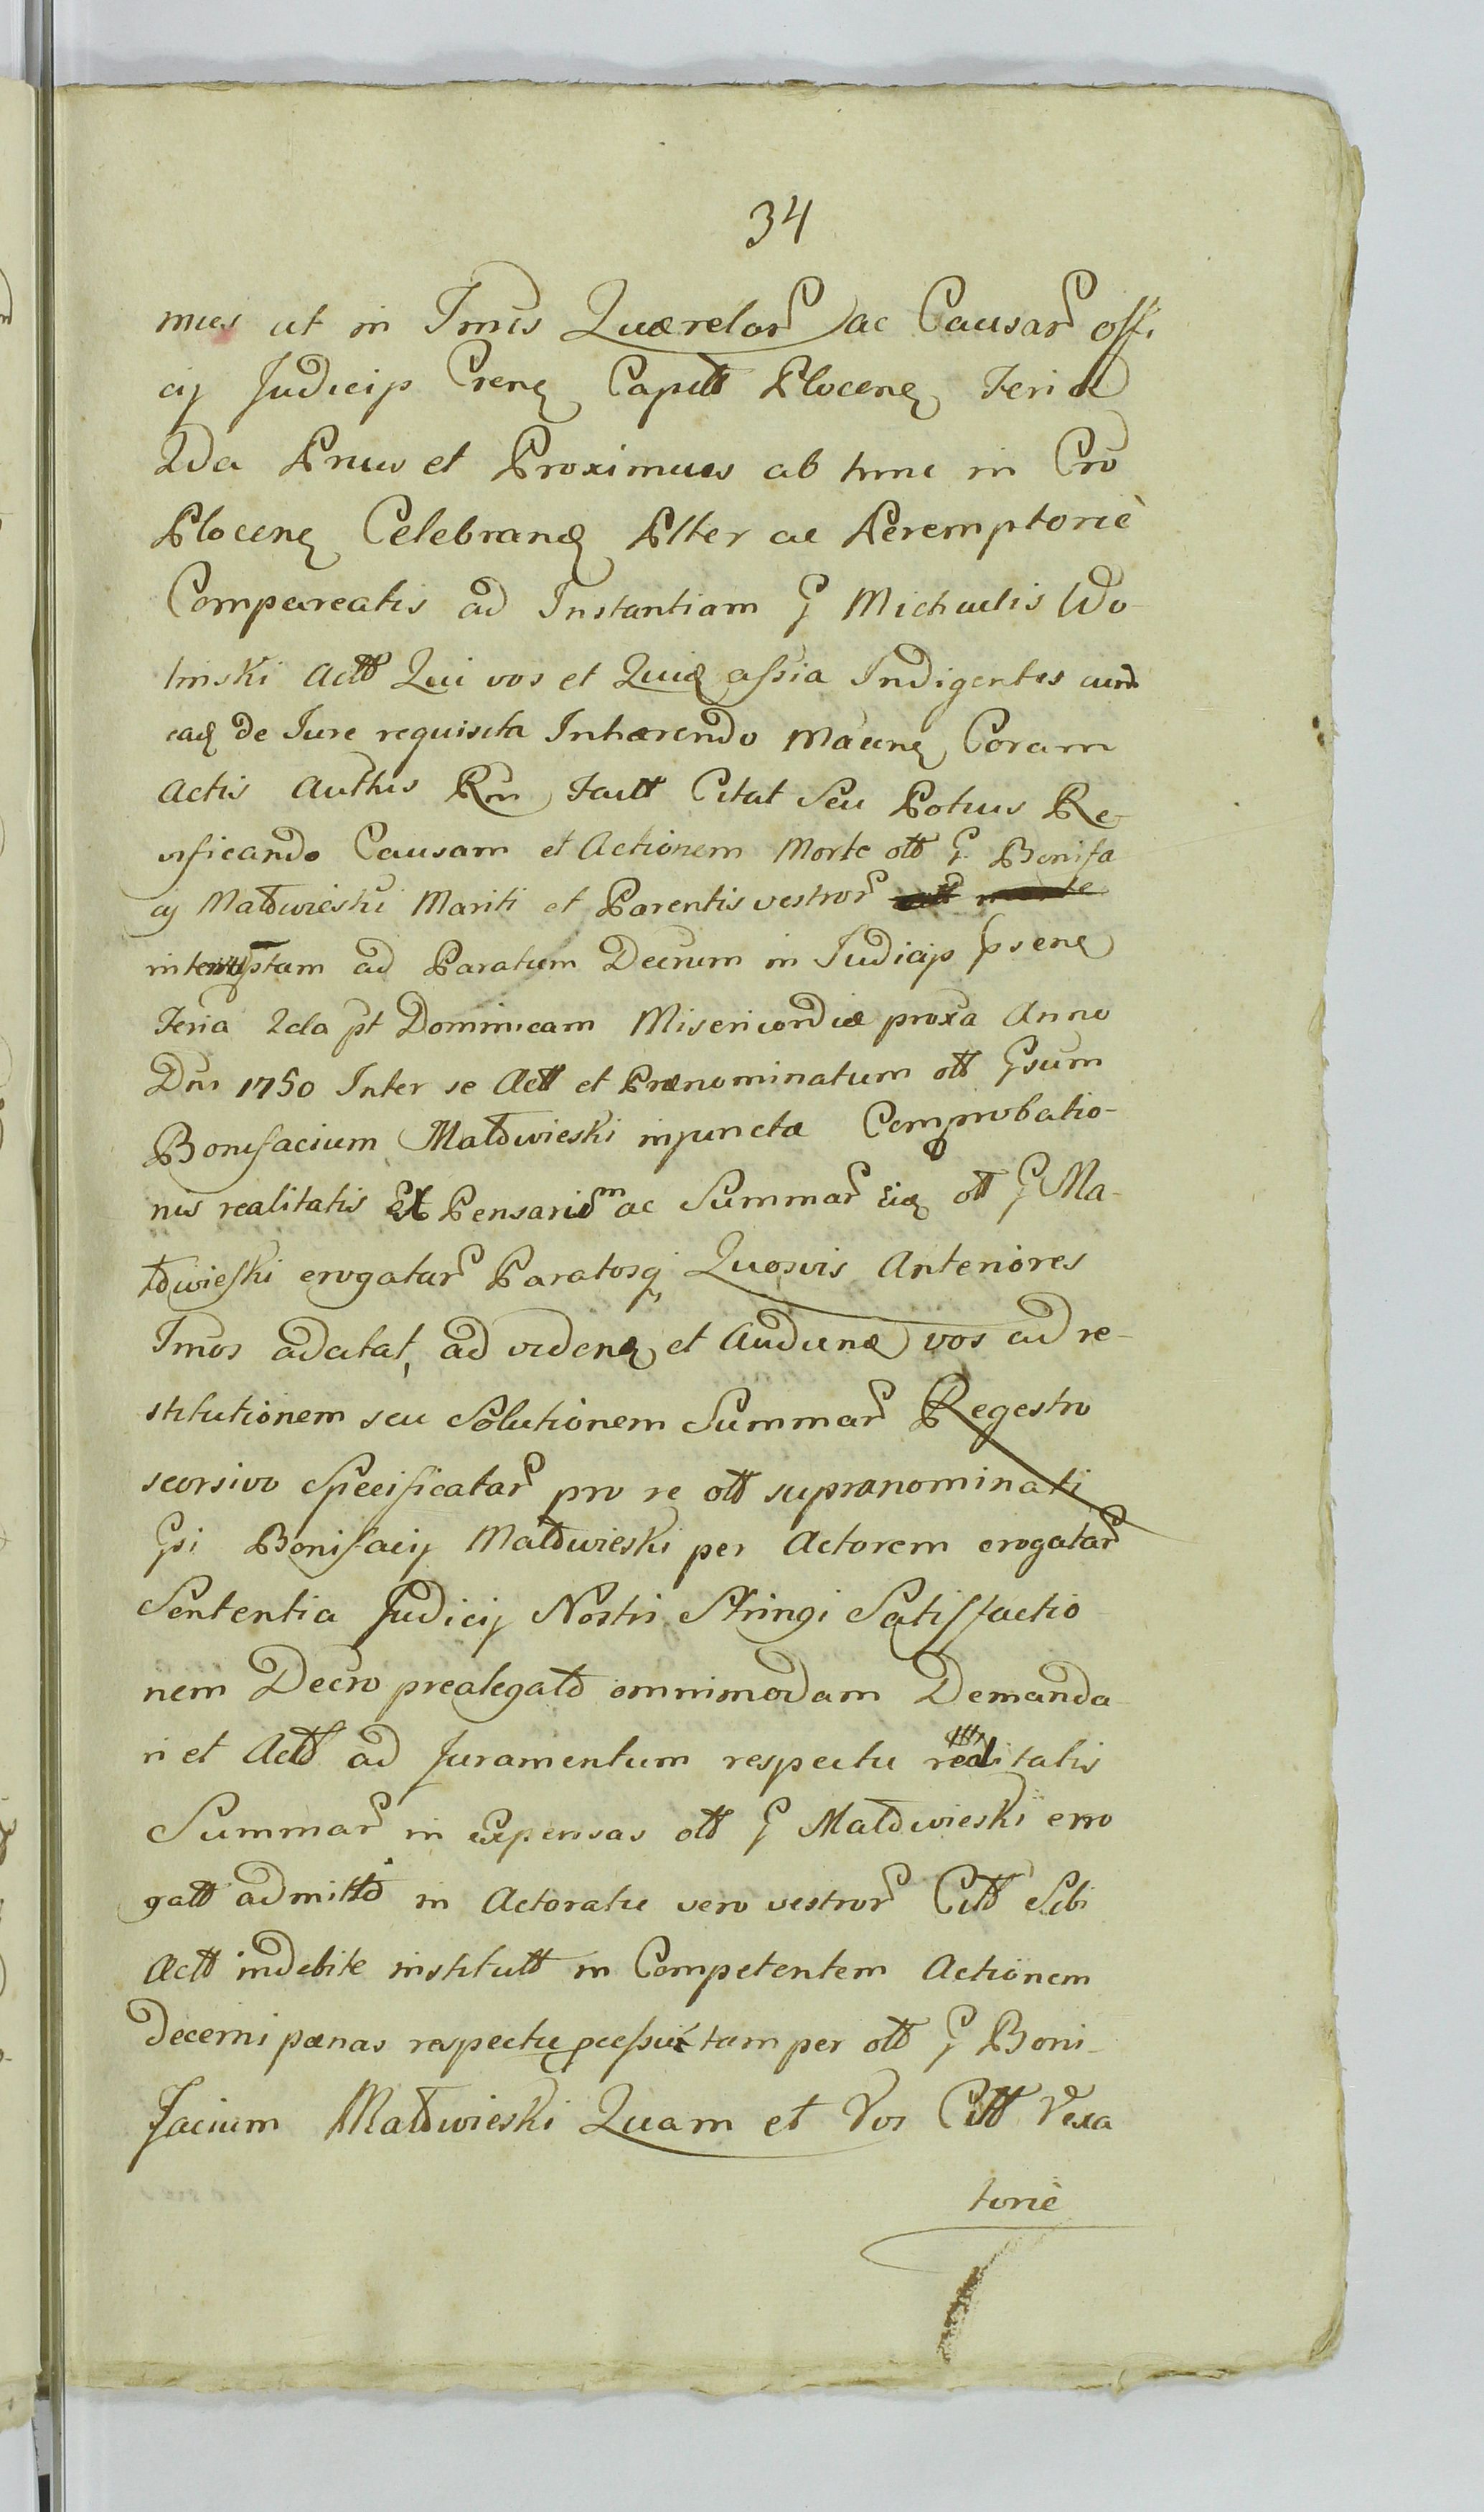 34
mus ut in Tmis Quærelar ac Causar offi
cij Judicijs Cren Capitt Plocen Feria
2da Pmus et Proximus ab hinc in Cro
Plocen Celebrand Plter ac Peremptorie
Compareatis ad Instantiam G Michaelis Wo-
linski Actt Qui vos et Quid assia Indigentes cum
ead de Jure requisita Inhærendo Coram
Actis Authis Rm Citat Seu Potius Re-
vificando Causam et Actionem Morte ott G Bonifa
cij Matdwieski Mariti et Parentis vestror
interruptam ad Paratum Decrum in Judicijs psen
Feria 2da pt Dominicam Misericordiæ proxa Anno
Dni 1750 Inter se Actt et Prænominatum ott Gsum
Bonifacium Matdwieski injunctæ Comprobatio-
nis realitatis Expensar ac Summar ott G Ma-
tdwieski erogatar Paratosq Quosvis Anteriores
Tmos adcitat, ad viden et Audien vos ad re-
stitutionem seu Solutionem Summar Regestro
seorsivo Specificatar pro re ott supranominati
Gsi Bonifacij Matdwieski per Actorem erogatar
Sententia Judicij Nostri Stringi Satisfactio
nem Decro prealegatd omnimodam Demanda
ri et Actt ad Juramentum respectu realitatis
Summar in expensas ott G Matdwieski erro
gatt admittd in Actoratu vero vestror Citt Sibi
Actt indebite institutt in Competentem Actionem
decerni pænas respectu tam per ott G Boni-
facium Matdwieski Quam et Vos Citt Vexa
torie